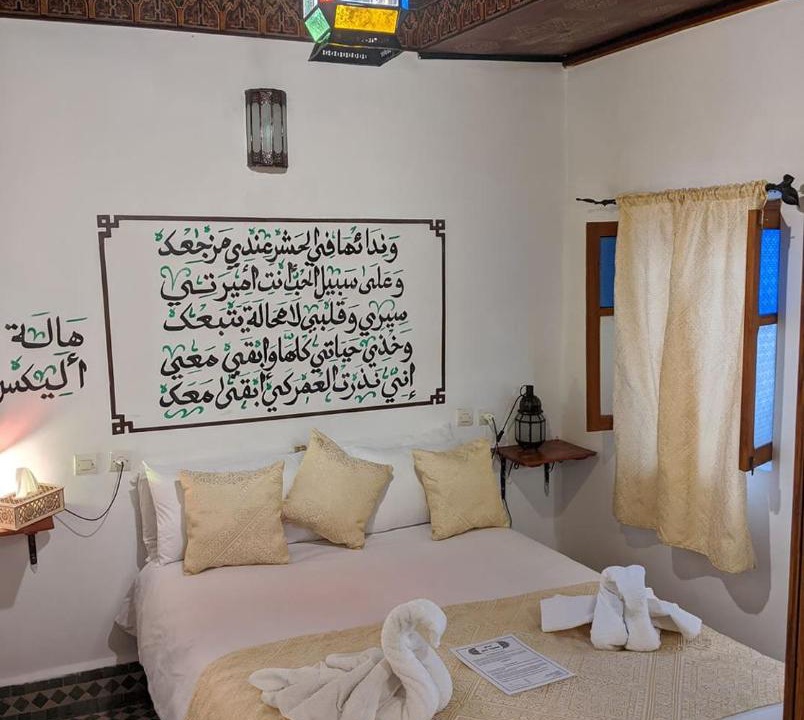 وَندَائُهَا فِي الحَشْرِ عِنْدِي مَرْجَعُكِ
وَعَلى سَبِيلِ الحُبِّ أَنتِ أَمِيرَتِي
سِيرِي وَقَلْبِي لاَ مَحَالَةَ يَتْبَعُكِ
وَخُذِي حَيَاتِي كُلَّهَا وَابْقَي مَعِي
إِنِّي نَذَرْتُ العُمْرَ كَي أَبْقَى مَعَكِ
هَالَة
أَلِيكس